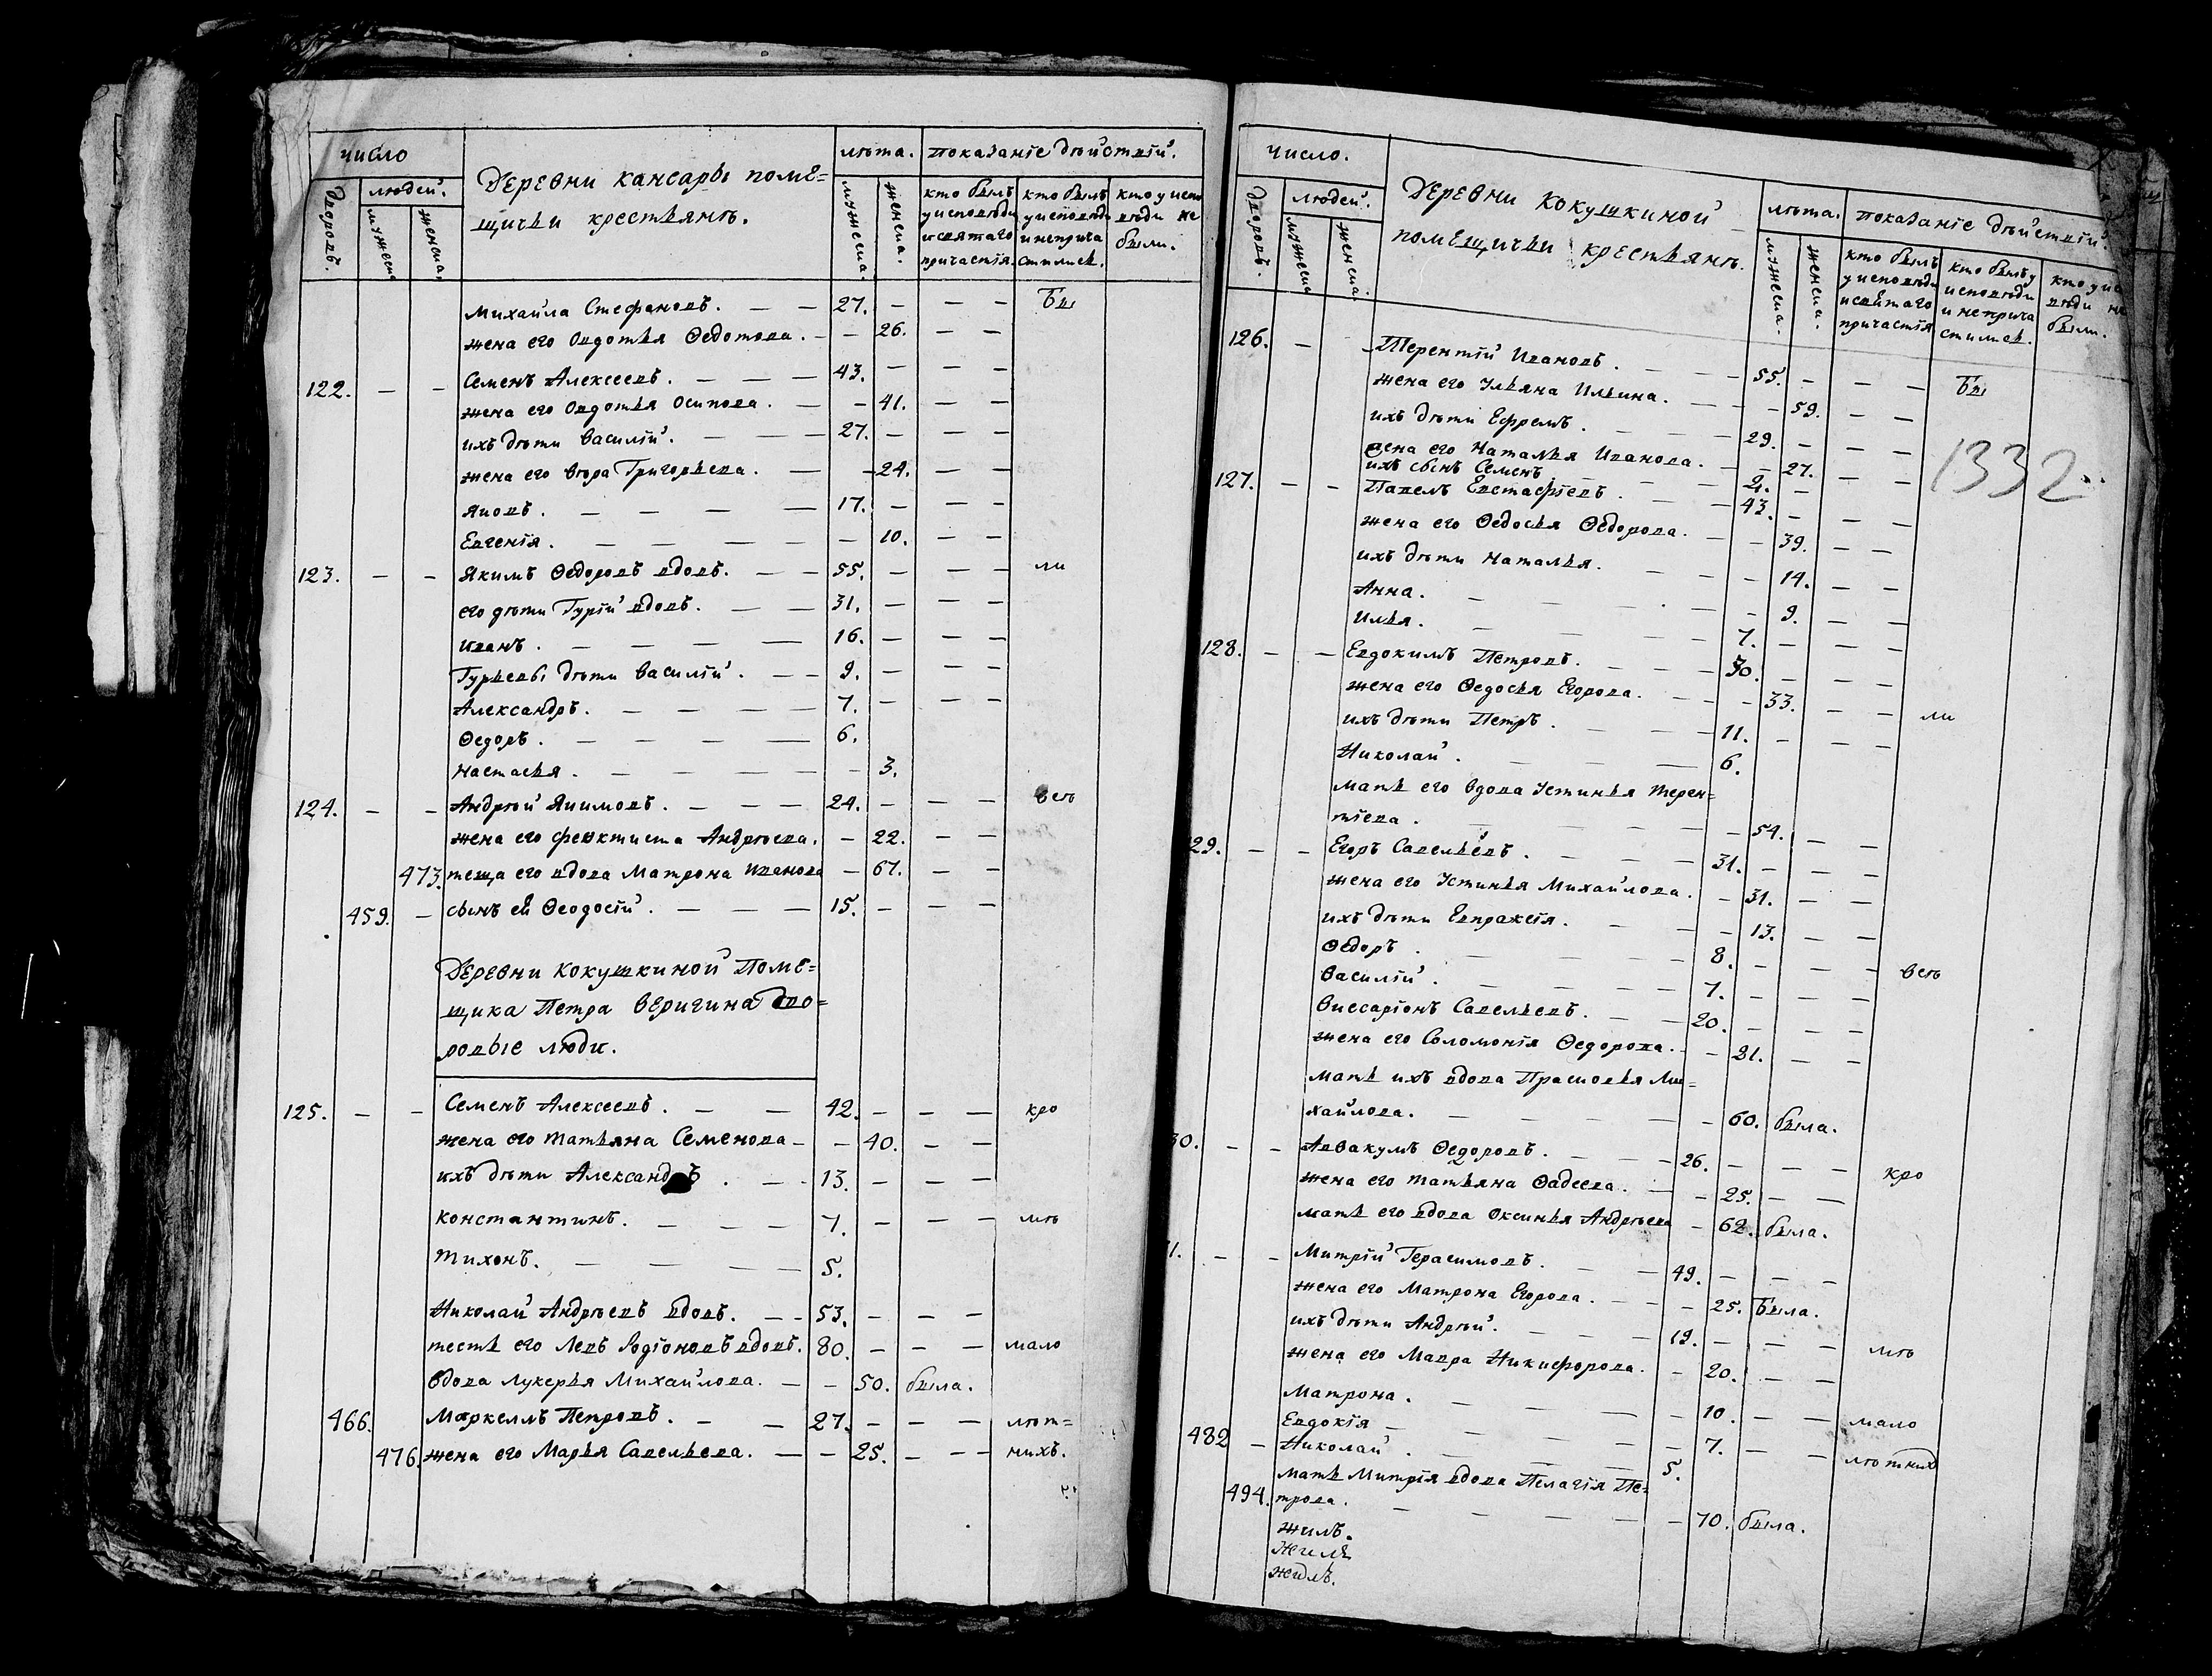 число
Деревни кансары поме=
щичьи крестьянъ.
лѣта.
показанїе дѣйствїй.
дворовъ.
людей.
мужеска
женска
мужеска.
женска.
кто былъ у исповѣди и святаго причастїя.
кто былъ у исповѣди и неприча стился.
кто у испо вѣди не были.
Михайла Стефановъ. — — 27. — — — Бы
жена его Овдотья Ѳедотова. — — 26. — —
122. — — Семенъ Алексеевъ. — — — 43. — — —
жена его Овдотья Осипова. — — 41. — —
ихъ дѣти Василїй. — — — 27. — — —
жена его Вѣра Григорьева. — — 24. — —
Яковъ. — — — — 17. — — —
Евгенїя. — — — — — 10. — —
123. — — Якимъ Ѳедоровъ вдовъ. — — 55. — — — ли
его дѣти Гурїй вдовъ. — — 31. — — —
Иванъ. — — — — 16. — — —
Гурьевы дѣти Василїй. — — 9. — — —
Александръ. — — — — 7. — — —
Ѳедоръ. — — — — 6.
Настасья. — — — — — 3.
124. — — Андрѣй Якимовъ. — — — 24. — — — всѣ
жена его Феоктиста Андрѣева. — 22. — —
473. теща его вдова Матрона Иванова — 67. — —
459. — сынъ ей Ѳеодосїй. — — — 15. — — —
Деревни Кокушкиной Поме=
щика Петра Веригина дво=
ровые люди.
125. — — Семенъ Алексеевъ. — — 42. — — — кро
жена его Татьяна Семенова — — 40. — —
ихъ дѣти Александръ . — — 13. — — —
Константинъ. — — — 7. — — — мѣ
Тихонъ. — — — — 5.
Николай Андрѣевъ вдовъ. — — 53. — — —
тесть его Левъ Родїоновъ вдовъ. 80. — — — мало
Вдова Лукерья Михайлова. — — 50. была.
466. Маркеллъ Петровъ. — — 27. — — — лѣт=
476. жена его Марья Савельева. — — 25. — — — нихъ.
число.
Деревни Кокушкиной
помещичьи крестьянъ.
лѣта.
показанїе дѣйствїй.
дворовъ.
людей.
мужеска
женска
мужеска.
женска.
кто былъ у исповѣди и святаго причастїя
кто былъ у исповѣди и неприча стился.
кто у ис вѣди не были.
126. — Терентїй Ивановъ. — — — 55. — — — Бы
жена его Ульяна Ильина. — — — 59. — —
ихъ дѣти Ефремъ. — — — 29. — — —
жена его Наталья Иванова. — — 27. — —
ихъ сынъ Семенъ — — — 2. —
127. — — Павелъ Евстафїевъ. — — 43. — — —
1332
жена его Ѳедосья Ѳедорова. — — 39. — —
ихъ дѣти Наталья. — — — 14. — —
Анна. — — — — — 9. — —
Илья. — — — — 7. — — —
128. — — Евдокимъ Петровъ. — — — 30. — — —
жена его Ѳедосья Егорова. — — — 33. — — ли
ихъ дѣти Петръ. — — — 11. — — —
Николай. — — — 6.
мать его вдова Устинья Терен=
тїева. — — — — — 54. — —
29. — — Егоръ Савельевъ. — — — 31. — — —
жена его Устинья Михайлова. — 31. — —
ихъ дѣти Евпраксїя. — — — 13. — —
Ѳедоръ. — — — — 8. — — — всѣ
Василїй. — — — — 7. — — —
Виссарїонъ Савельевъ. — — 20. — — —
жена его Соломонїя Ѳедорова. — — 21. — —
мать ихъ вдова Прасковья Ми=
хайлова. — — — — — 60. была.
30. — — Аввакумъ Ѳедоровъ. — — — 26. — — — кро
жена его Татьяна Ѳадеева. — — 25. — —
мать его вдова Оксинья Андрѣева — 62. была.
1. — — Митрїй Герасимовъ. — — 49. — — —
жена его Матрона Егорова. — — — 25. Была.
ихъ дѣти Андрѣй. — — — 19. — — — мѣ
жена его Мавра Никифорова. — 20. — —
Матрона. — — — — 10. — — мало
Евдокїя — — — — — 7. — —
482 — Николай. — — — — 5. лѣтнихъ
мать Митрїя вдова Пелагїя Пе=
494. трова. — — — — — 70. была.
жилъ.
жилъ
жилъ.